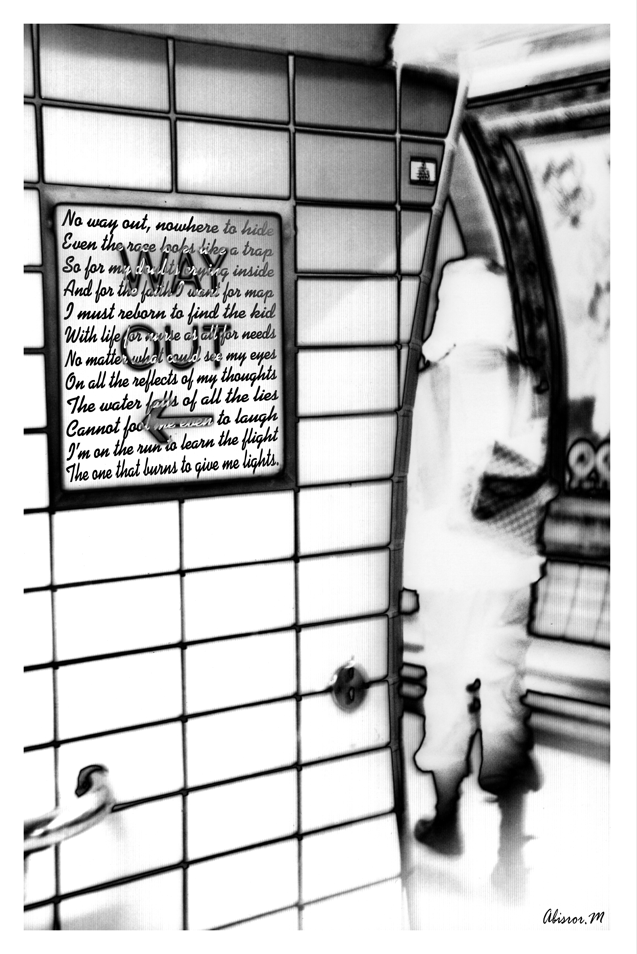 No way out, nowhere to hide
Even the race looks like a trap
So for my doubts crying inside
And for the faith I want for map
I must reborn to find the kid
With life for nurse as all for needs
No matter what could see my eyes
On all the reflects of my thoughts
The water falls of all the lies
Cannot fool me even to laugh
I'm on the run to learn the flight
The one that burns to give me lights.
WAY
OUT
Abisror.M